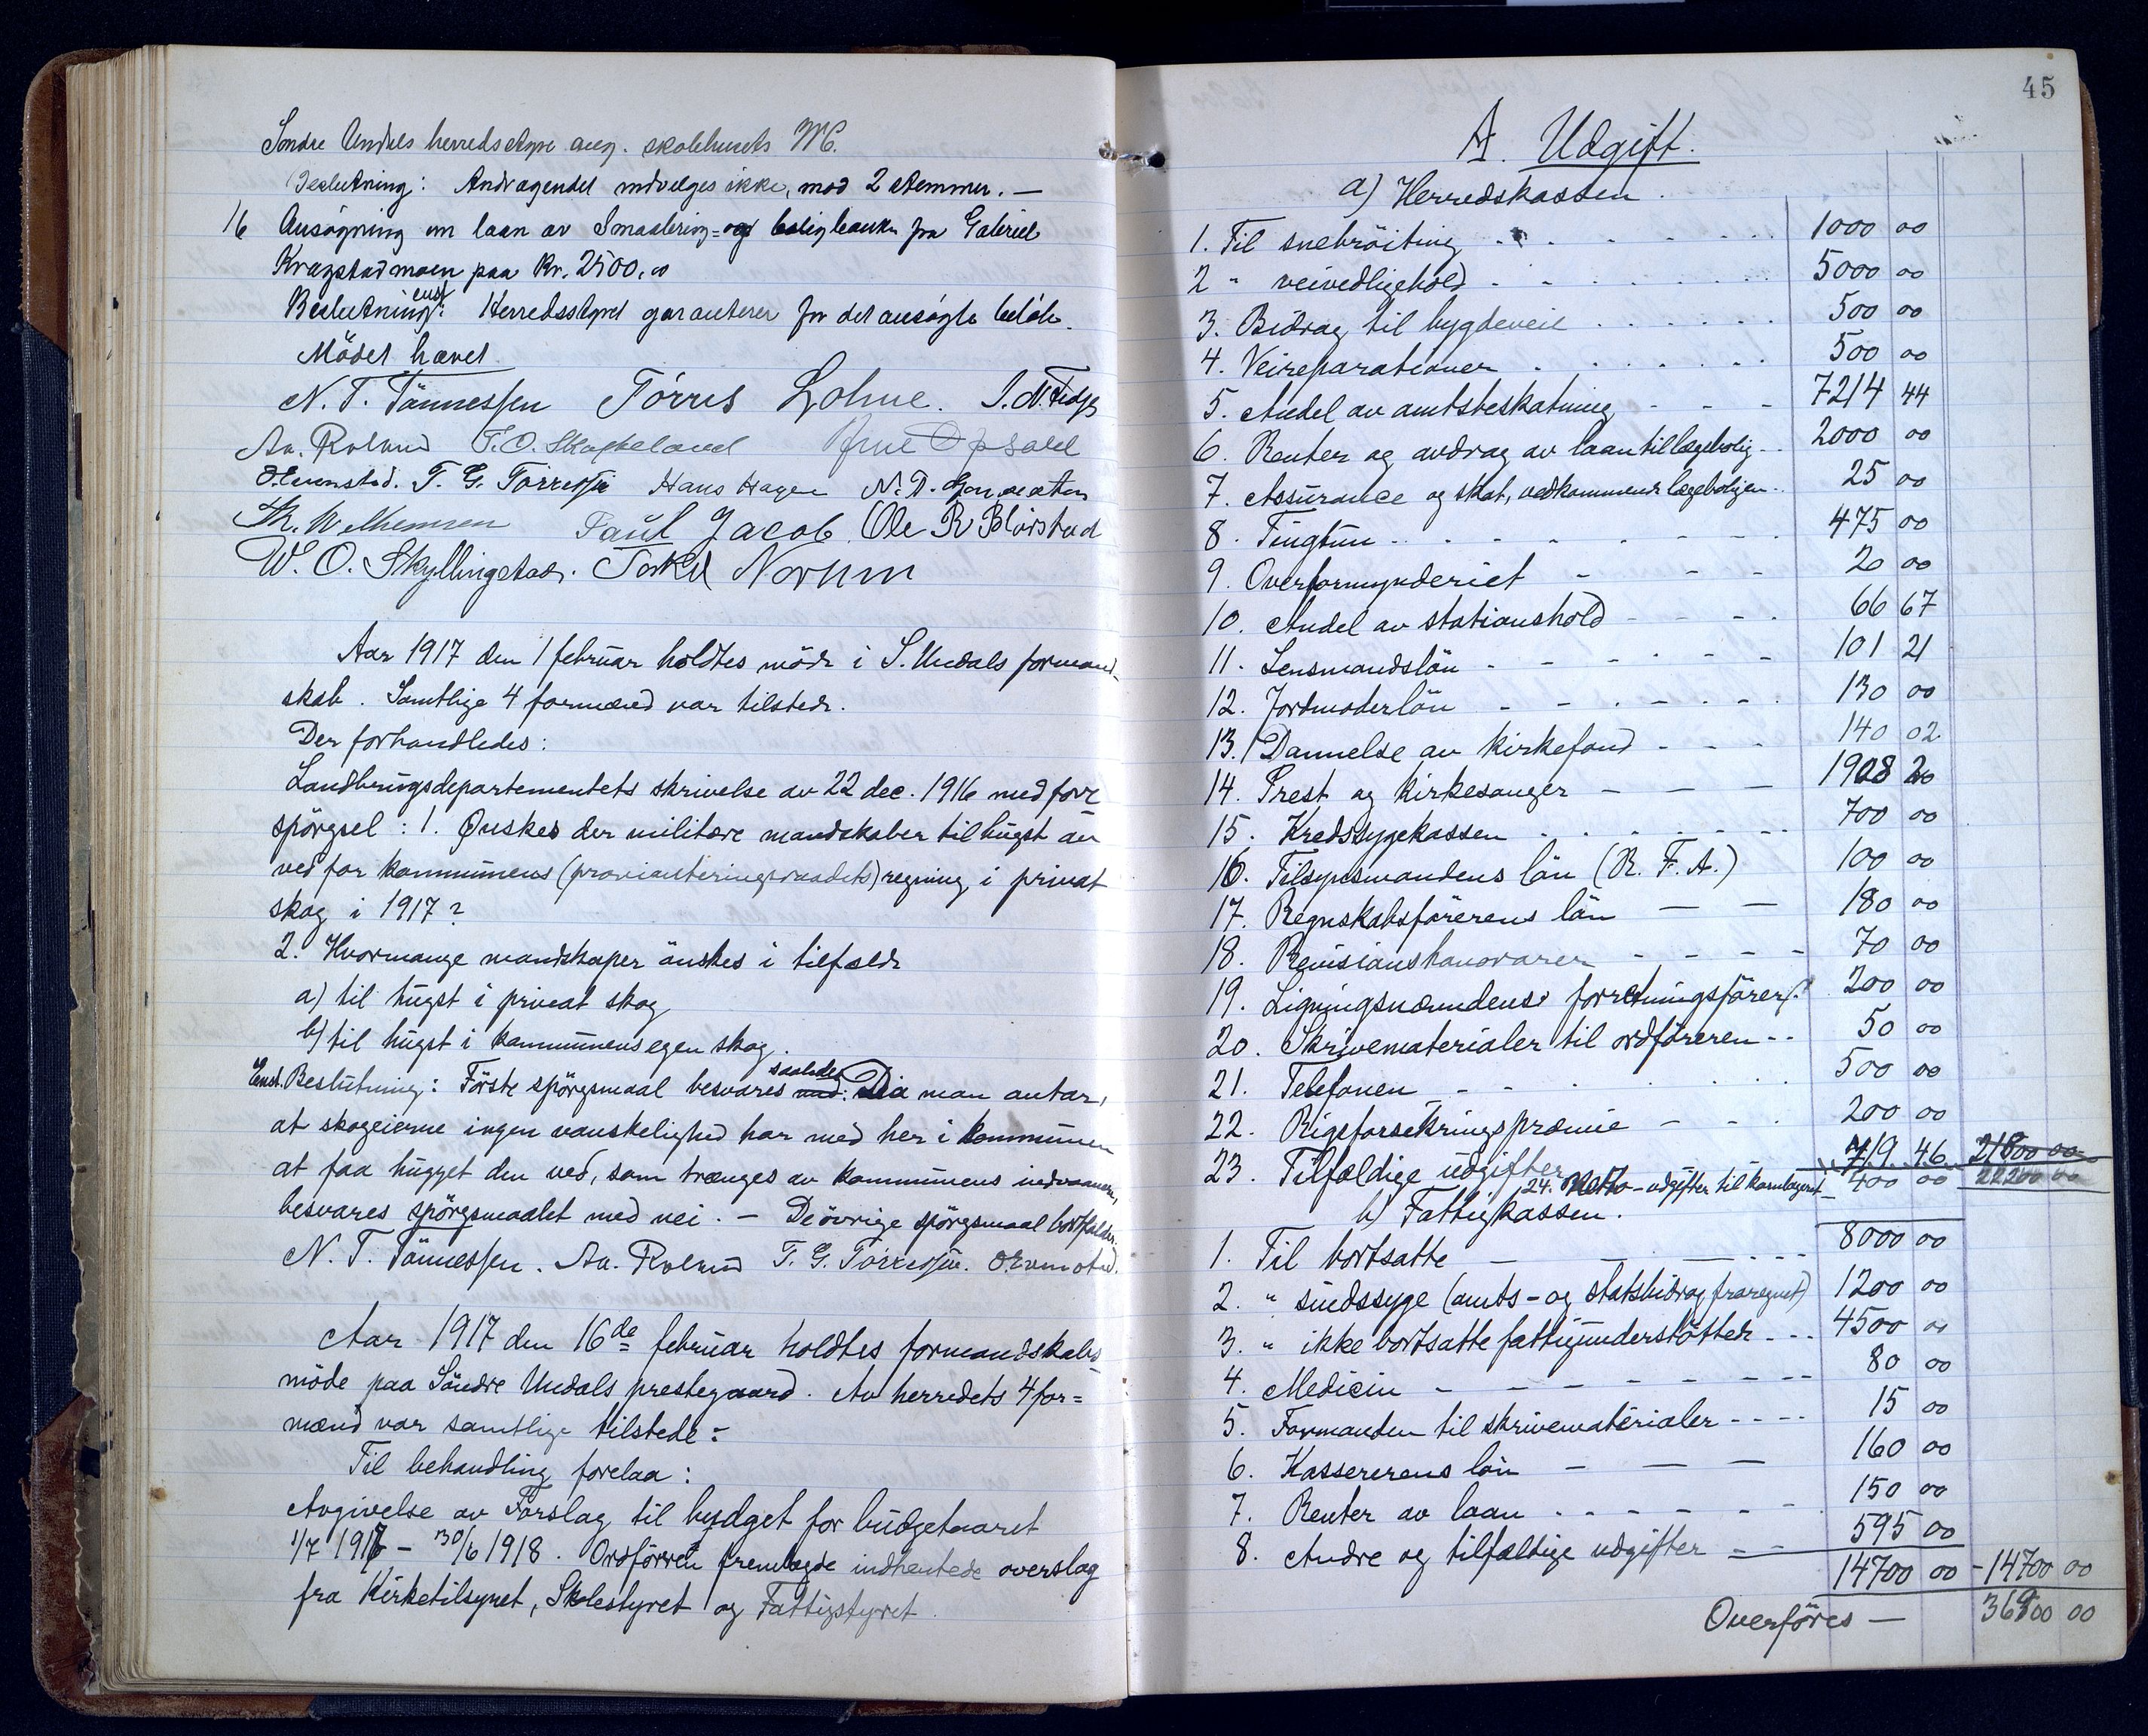 Söndre Undals herredstyre ang. skolehusets W.C.
Beslutning: Andragendet indvilges ikke, mod 2 stemmer. —
16 Ansögning om laan av Smaabruk= og boligbanken fra Gabriel
Kragstadmoen paa Kr. 2500,00
enst.
Beslutning: Herredsstyret garanterer for det ansögte belöb.
Mödet hævet
N. T. Tönnessen Törres Lohne.
Aa. Röland T. O. Skagkeland Arne Opsahl
O. Evenstad. T. G. Törressen Hans Hagen
Th. Wilhemsen Paul Jacob. Ole R Blörstad
W. O. Skyllingstad. Torkel Norum
Aar 1917 den 1 februar holdtes möde i S. Undals formand-
skab. Samtlige 4 formænd var tilstede.
Der forhandledes:
Landbrugsdepartementets skrivelse av 22 dec. 1916 med fore
spörgsel: 1. Önskes der militære mandskaber til hugst av
ved for kommunens (provianteringsraadets) regning, i privat
skog i 1917?
2. Hvormange mandskaper önskes i tilfælde
a) til hugst i privat skog
b) til hugst i kommunens egen skog.
saaledes
Enst. Beslutning: Förste spörgsmaal besvares med: Da man antar,
at skogeierne ingen vanskelighed har med her i kommunen
at faa hugget den ved, som trænges av kommunens indvaanere,
besvares spörgsmaalet med nei. — De övrige spörgsmaal bortfalder.
N. T. Tönnessen. Aa. Röland T. G. Törressen. O Evenstad.
Aar 1917 den 16de februar holdtes formandskabs-
möde paa Söndre Undals prestegaard. Av herredets 4 for=
mænd var samtlige tilstede:
Til behandling forelaa:
Avgivelse av Forslag til budget for budgetaaret
1/7 1917 - 30/6 1918. Ordföreren fremlagde indhentede overslag
fra Kirketilsynet, Skolestyret og Fattigstyret.
45
A. Udgift.
a) Herredskassen.
1. Til snebröiting 1000 00
2 " veivedligehold 5000 00
3. Bidrag til bygdeveie 500 00
4. Veireparationer 500 00
5. Andel av amtsbeskatning 7214 44
6. Renter og avdrag av laan til lægebolig 2000 00
7. Assurance og skat, vedkommende lægeboligen 25 00
8. Tingtun 475 00
9. Overformynderiet 20 00
10. Andel av stationshold 66 67
11. Lensmandslön 101 21
12. Jordmoderlön 130 00
13. Dannelse av kirkefond 140 02
14. Prest og kirkesanger 1908 20
15. Kredssygekassen 700 00
16. Tilsynsmandens lön (R. F. A.) 100 00
17. Regnskabsförerens lön 180 00
18. Revisionshonorarer 70 00
19. Ligningsnævndens forretningsförer 200 00
20. Skrivematerialer til ordföreren 50 00
21. Telefonen 500 00
22. Rigsforsekringspræmie 200 00
23. Tilfældige udgifter 719 46 21800 00
24. Netto-udgifter til kornlageret 400 00 22200 00
b) Fattigkassen.
1. Til bortsatte 8000 00
2. " sindssyge (amts- og statsbidrag fraregnet) 1200 00
3. " ikke bortsatte fattigunderstöttede 4500 00
4. Medicin 80 00
5. Formanden til skrivematerialer 15 00
6. Kassererens lön 160 00
7. Renter av laan 150 00
8. Andre og tilfældige udgifter 595 00
14700 00 - 14700 00
Overföres — 36900 00